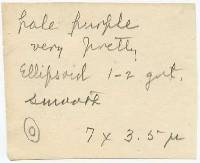 pale purple
very pretty
Ellipsoid 1-2 gut.
smooth
0 7 x 3.5 µ